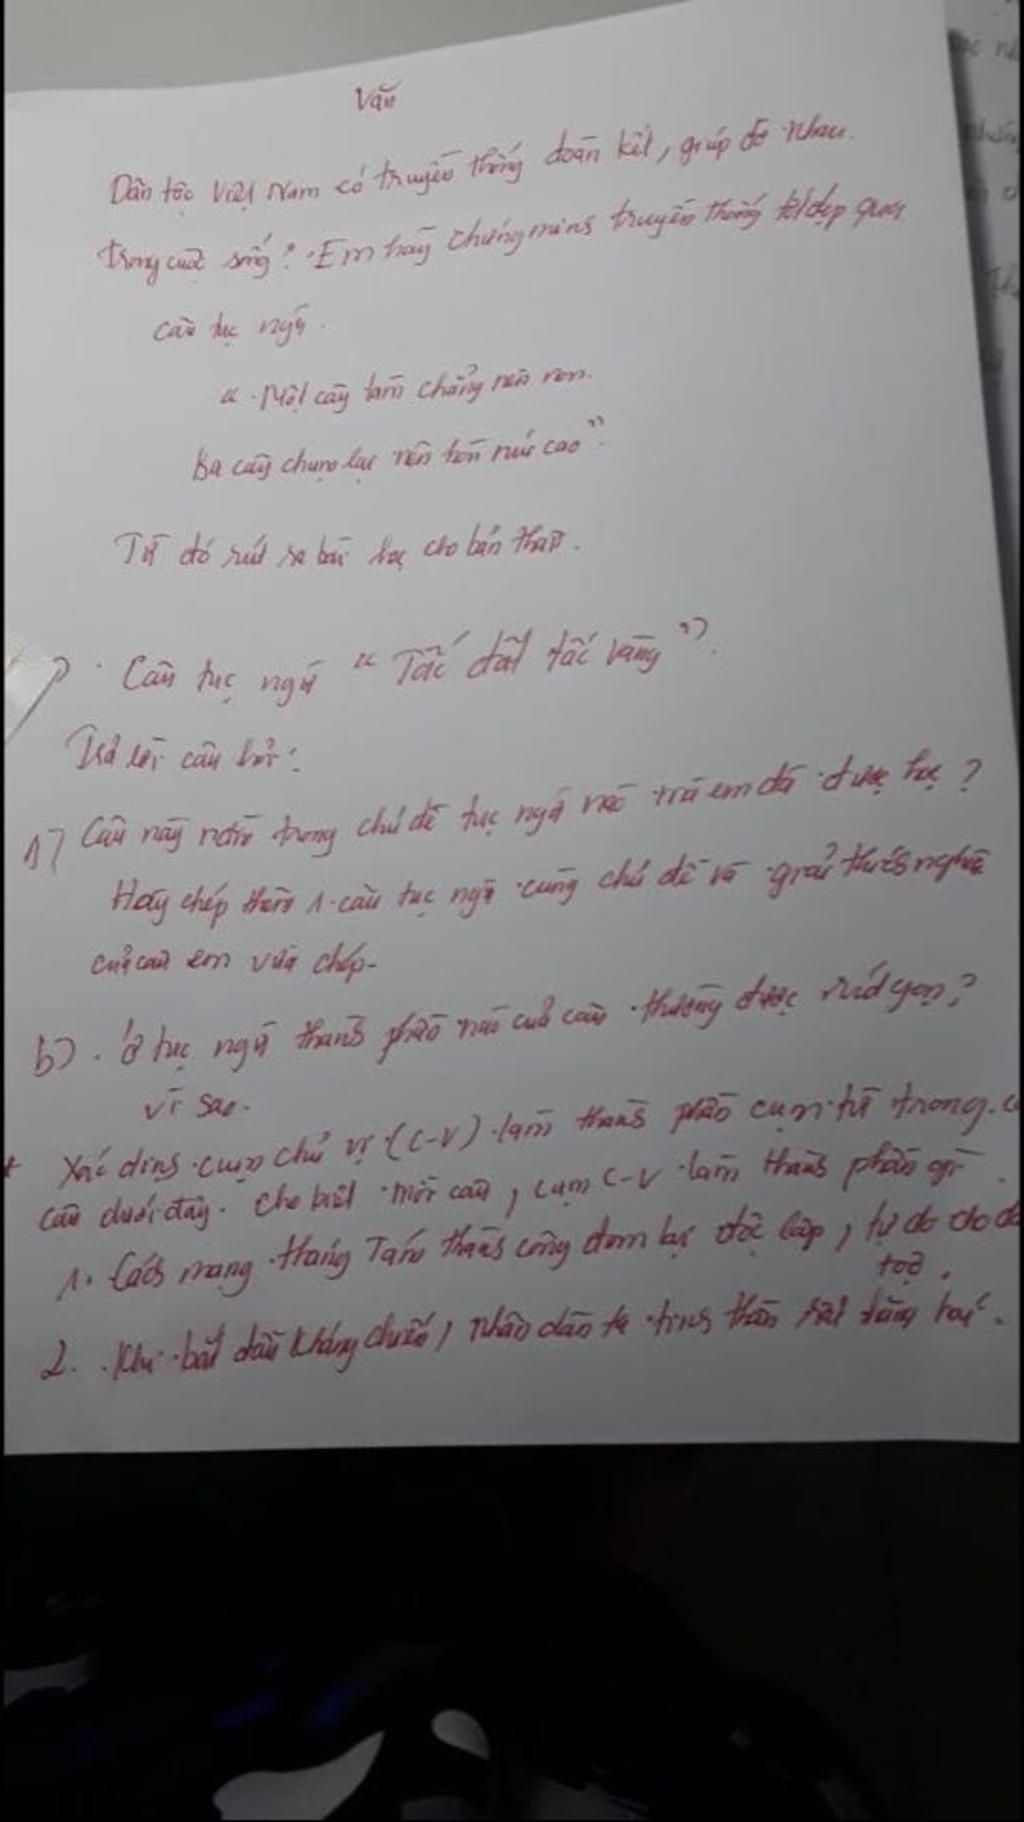 Văn
Dân tộc Việt Nam có truyền thống đoàn kết, giúp đỡ nhau
trong cuộc sống. Em hãy chứng minh truyền thống tốt đẹp qua
câu tục ngữ.
"Một cây làm chẳng nên non.
Ba cây chụm lại nên hòn núi cao"
Từ đó rút ra bài học cho bản thân.
Câu tục ngữ "Tấc đất tấc vàng".
Trả lời câu hỏi:
1) Câu này nằm trong chủ đề tục ngữ nào mà em đã được học?
Hãy chép thêm 1 câu tục ngữ cùng chủ đề và giải thích nghĩa
của câu em vừa chép-
b). Ở tục ngữ thành phần nào của câu thường được rút gọn?
Vì sao.
Xác định cụm chủ vị (C-V) làm thành phần cụm từ trong
câu dưới đây. Cho biết mỗi câu, cụm C-V làm thành phần gì.
1. Cách mạng tháng Tám thành công đem lại độc lập, tự do cho
2. Khi bắt đầu kháng chiến, nhân dân ta tinh thần rất hăng hái.